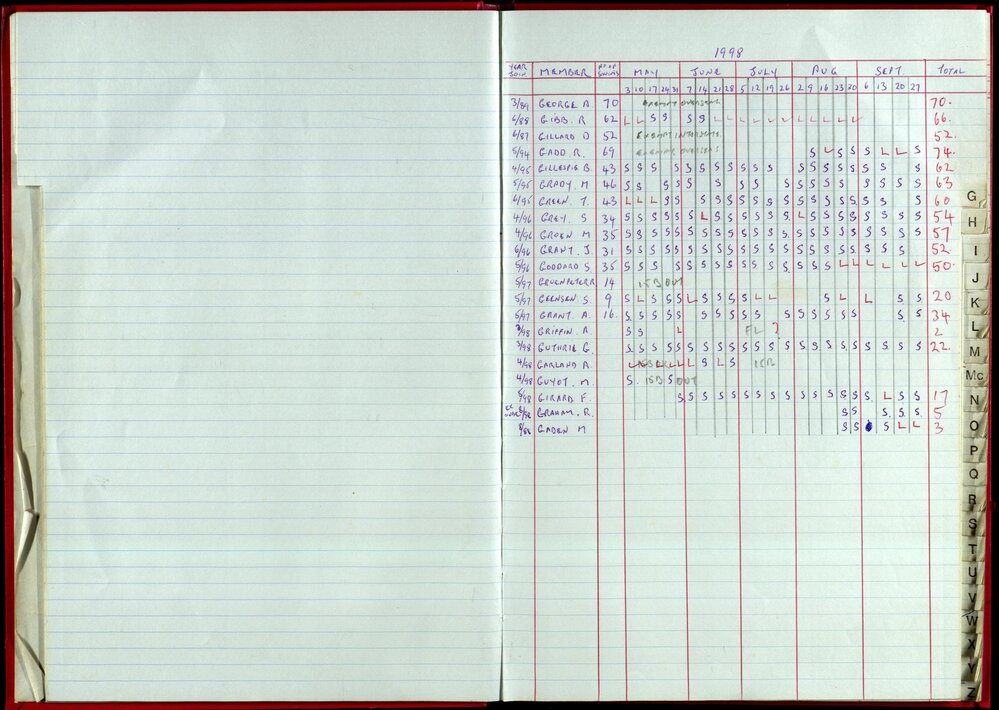 1998
YEAR JOIN MEMBER Nº OF SWIMS MAY JUNE JULY AUG SEPT. TOTAL
3 10 17 24 31 7 14 21 28 5 12 19 26 2 9 16 23 30 6 13 20 27
3/89 GEORGE A 70 EXEMPT OVERSEAS 70.
6/88 GIBB. R 62 L L S S S S L L L L L L L L L L L 66.
6/87 GILLARD D 52 EXEMPT INTERSTATE 52.
5/94 GADD. R. 69 EXEMPT OVERSEAS S L S S S L L S 74.
4/95 GILLESPIE B. 43 S S S S S S S S S S S S S S S S S S S 62
5/95 GRADY. M 46 S S S S S S S S S S S S S S S S S 63
6/95 GREEN. T. 43 L L L S S S S S S S S S S S S S S S S S S 60
4/96 GREY. S 34 S S S S S S L S S S S S S L S S S S S S S S 54
4/96 GROEN M 35 S S S S S S S S S S S S S S S S S S S S S S 57
6/96 GRANT. J 31 S S S S S S S S S S S S S S S S S S S S S 52.
5/96 GODDARD S. 35 S S S S S S S S S S S S S S S L L L L L L 50.
5/97 14 ISB OUT
5/97 S. 9 S L S S S L S S S S L L S L L S S 20
5/97 GRANT. A. 16. S S S S S S S S S S S S S S S S S S 34
GRIFFIN. A. S S L FL ? 2
3/98 GUTHRIE G. S S S S S S S S S S S S S S S S S S S S S S 22.
4/98 GARLAND A. L L L L L L S L S ISB
4/98 GUYOT. M. S. ISB S OUT
5/98 GIRARD F. S S S S S S S S S S S S S S S L S S 17
GRAHAM. R. S S S S S 5
GADEN M S S S L L 3
G
H
I
J
K
L
M
Mc
N
O
P
Q
R
S
T
U
V
W
X
Y
Z